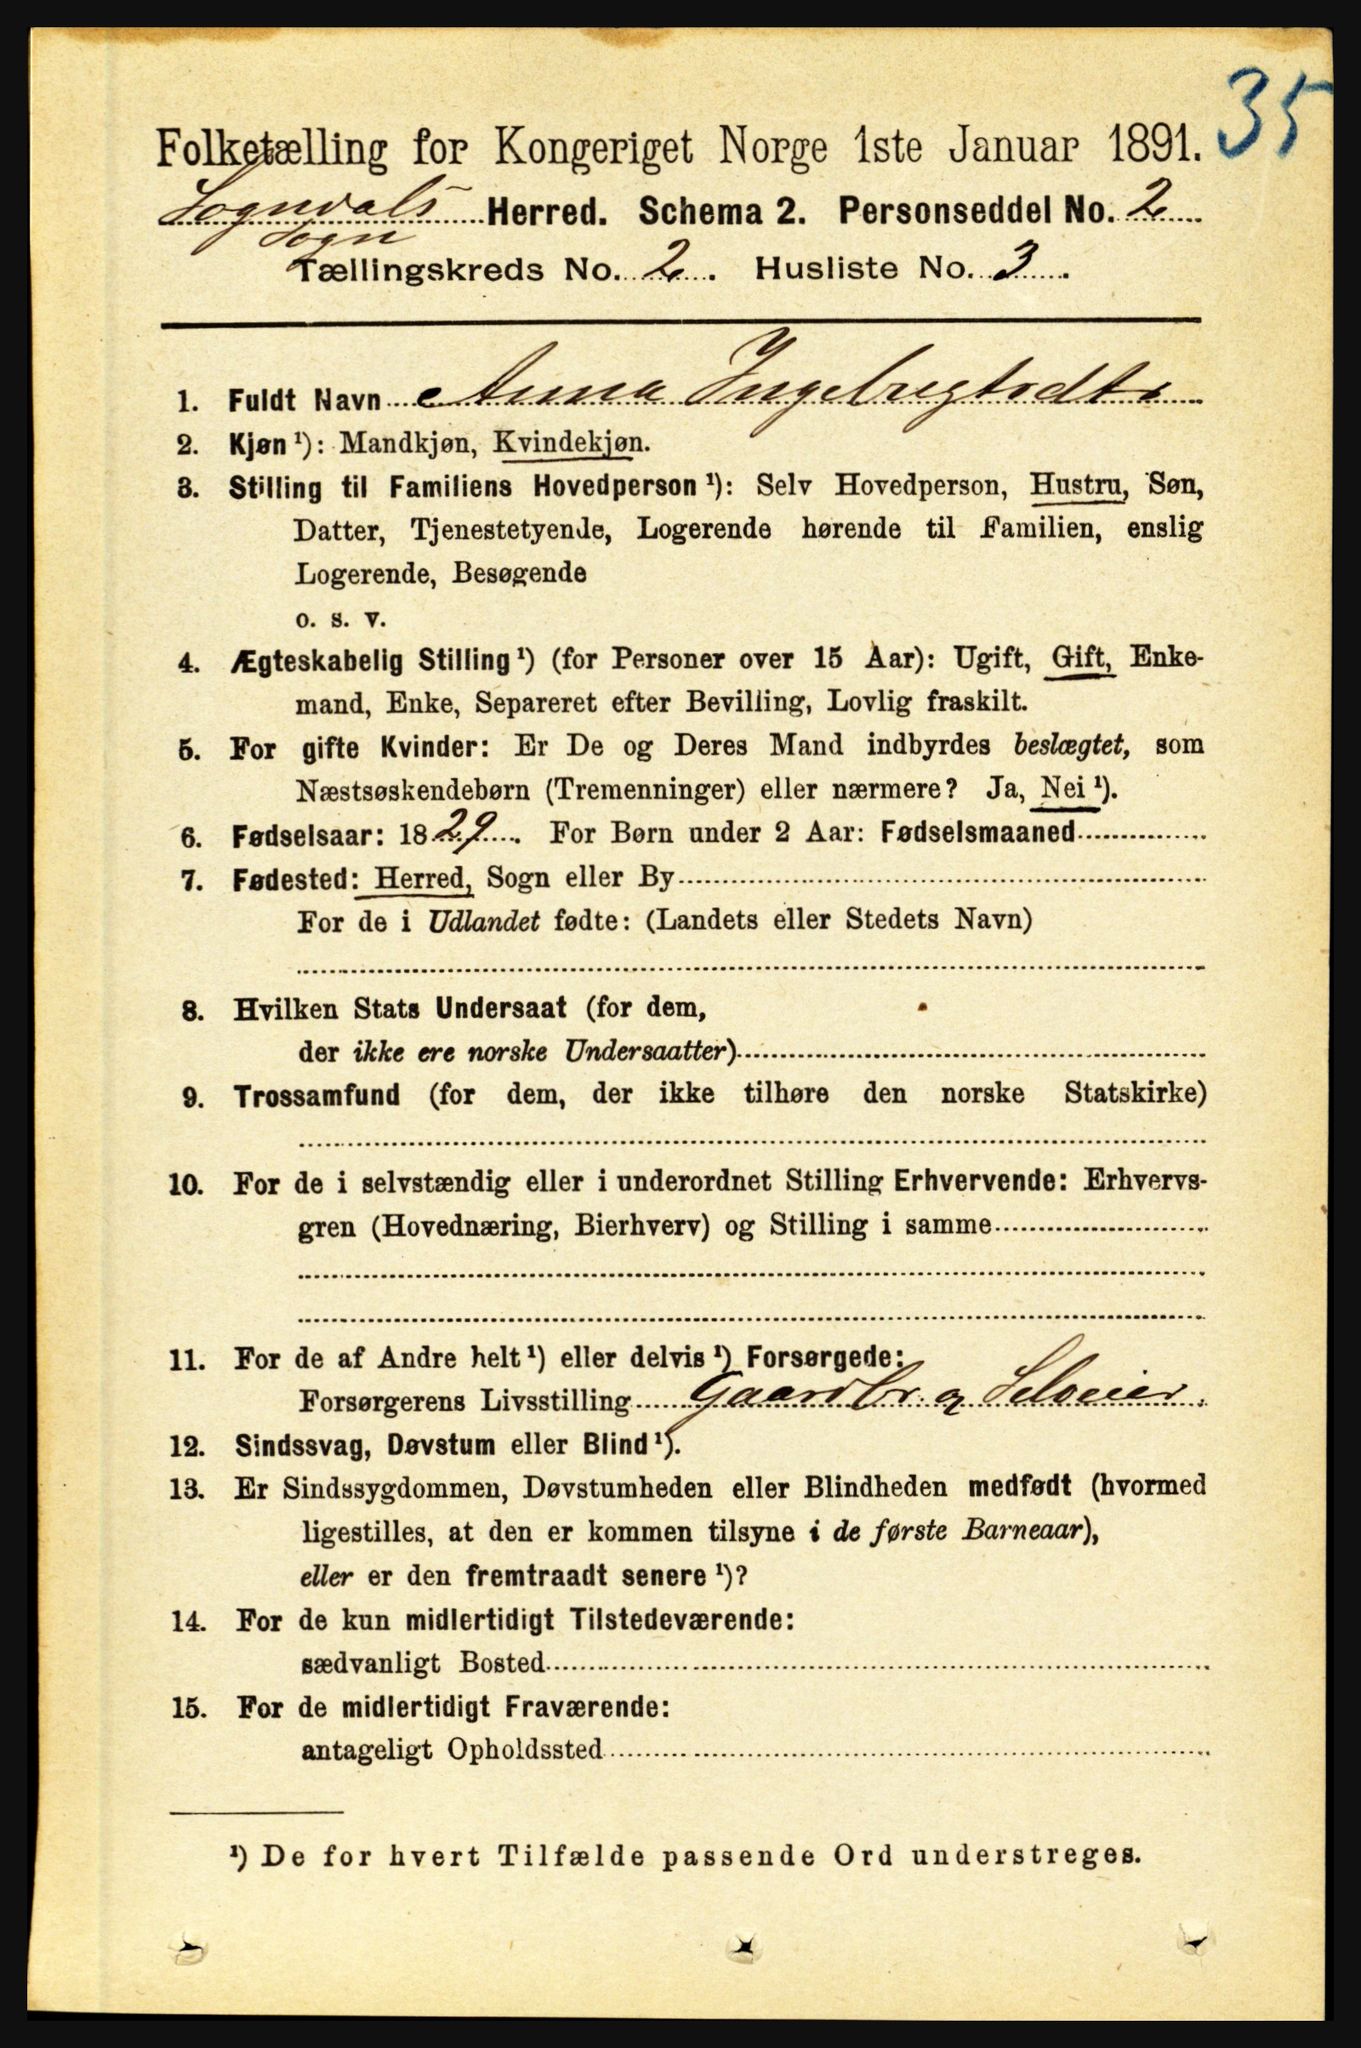 35
Folketælling for Kongeriget Norge 1ste Januar 1891.
Sogndals Herred. Schema 2. Personseddel No. 2
Sogn
Tællingskreds No. 2. Husliste No. 3.
1. Fuldt Navn Anna Ingebregtsdtr
2. Kjøn¹): Mandkjøn, Kvindekjøn.
3. Stilling til Familiens Hovedperson¹): Selv Hovedperson, Hustru, Søn,
Datter, Tjenestetyende, Logerende hørende til Familien, enslig
Logerende, Besøgende
o. s. v.
4. Ægteskabelig Stilling¹) (for Personer over 15 Aar): Ugift, Gift, Enke-
mand, Enke, Separeret efter Bevilling, Lovlig fraskilt.
5. For gifte Kvinder: Er De og Deres Mand indbyrdes beslægtet, som
Næstsøskendebørn (Tremenninger) eller nærmere? Ja, Nei¹).
6. Fødselsaar: 1829. For Børn under 2 Aar: Fødselsmaaned
7. Fødested: Herred, Sogn eller By
For de i Udlandet fødte: (Landets eller Stedets Navn)
8. Hvilken Stats Undersaat (for dem,
der ikke ere norske Undersaatter)
9. Trossamfund (for dem, der ikke tilhøre den norske Statskirke)
10. For de i selvstændig eller i underordnet Stilling Erhvervende: Erhvervs-
gren (Hovednæring, Bierhverv) og Stilling i samme
11. For de af Andre helt¹) eller delvis¹) Forsørgede:
Forsørgerens Livsstilling Gaardbr. og Selveier.
12. Sindssvag, Døvstum eller Blind¹).
13. Er Sindssygdommen, Døvstumheden eller Blindheden medfødt (hvormed
ligestilles, at den er kommen tilsyne i de første Barneaar),
eller er den fremtraadt senere¹)?
14. For de kun midlertidigt Tilstedeværende:
sædvanligt Bosted
15. For de midlertidigt Fraværende:
antageligt Opholdssted
¹) De for hvert Tilfælde passende Ord understreges.